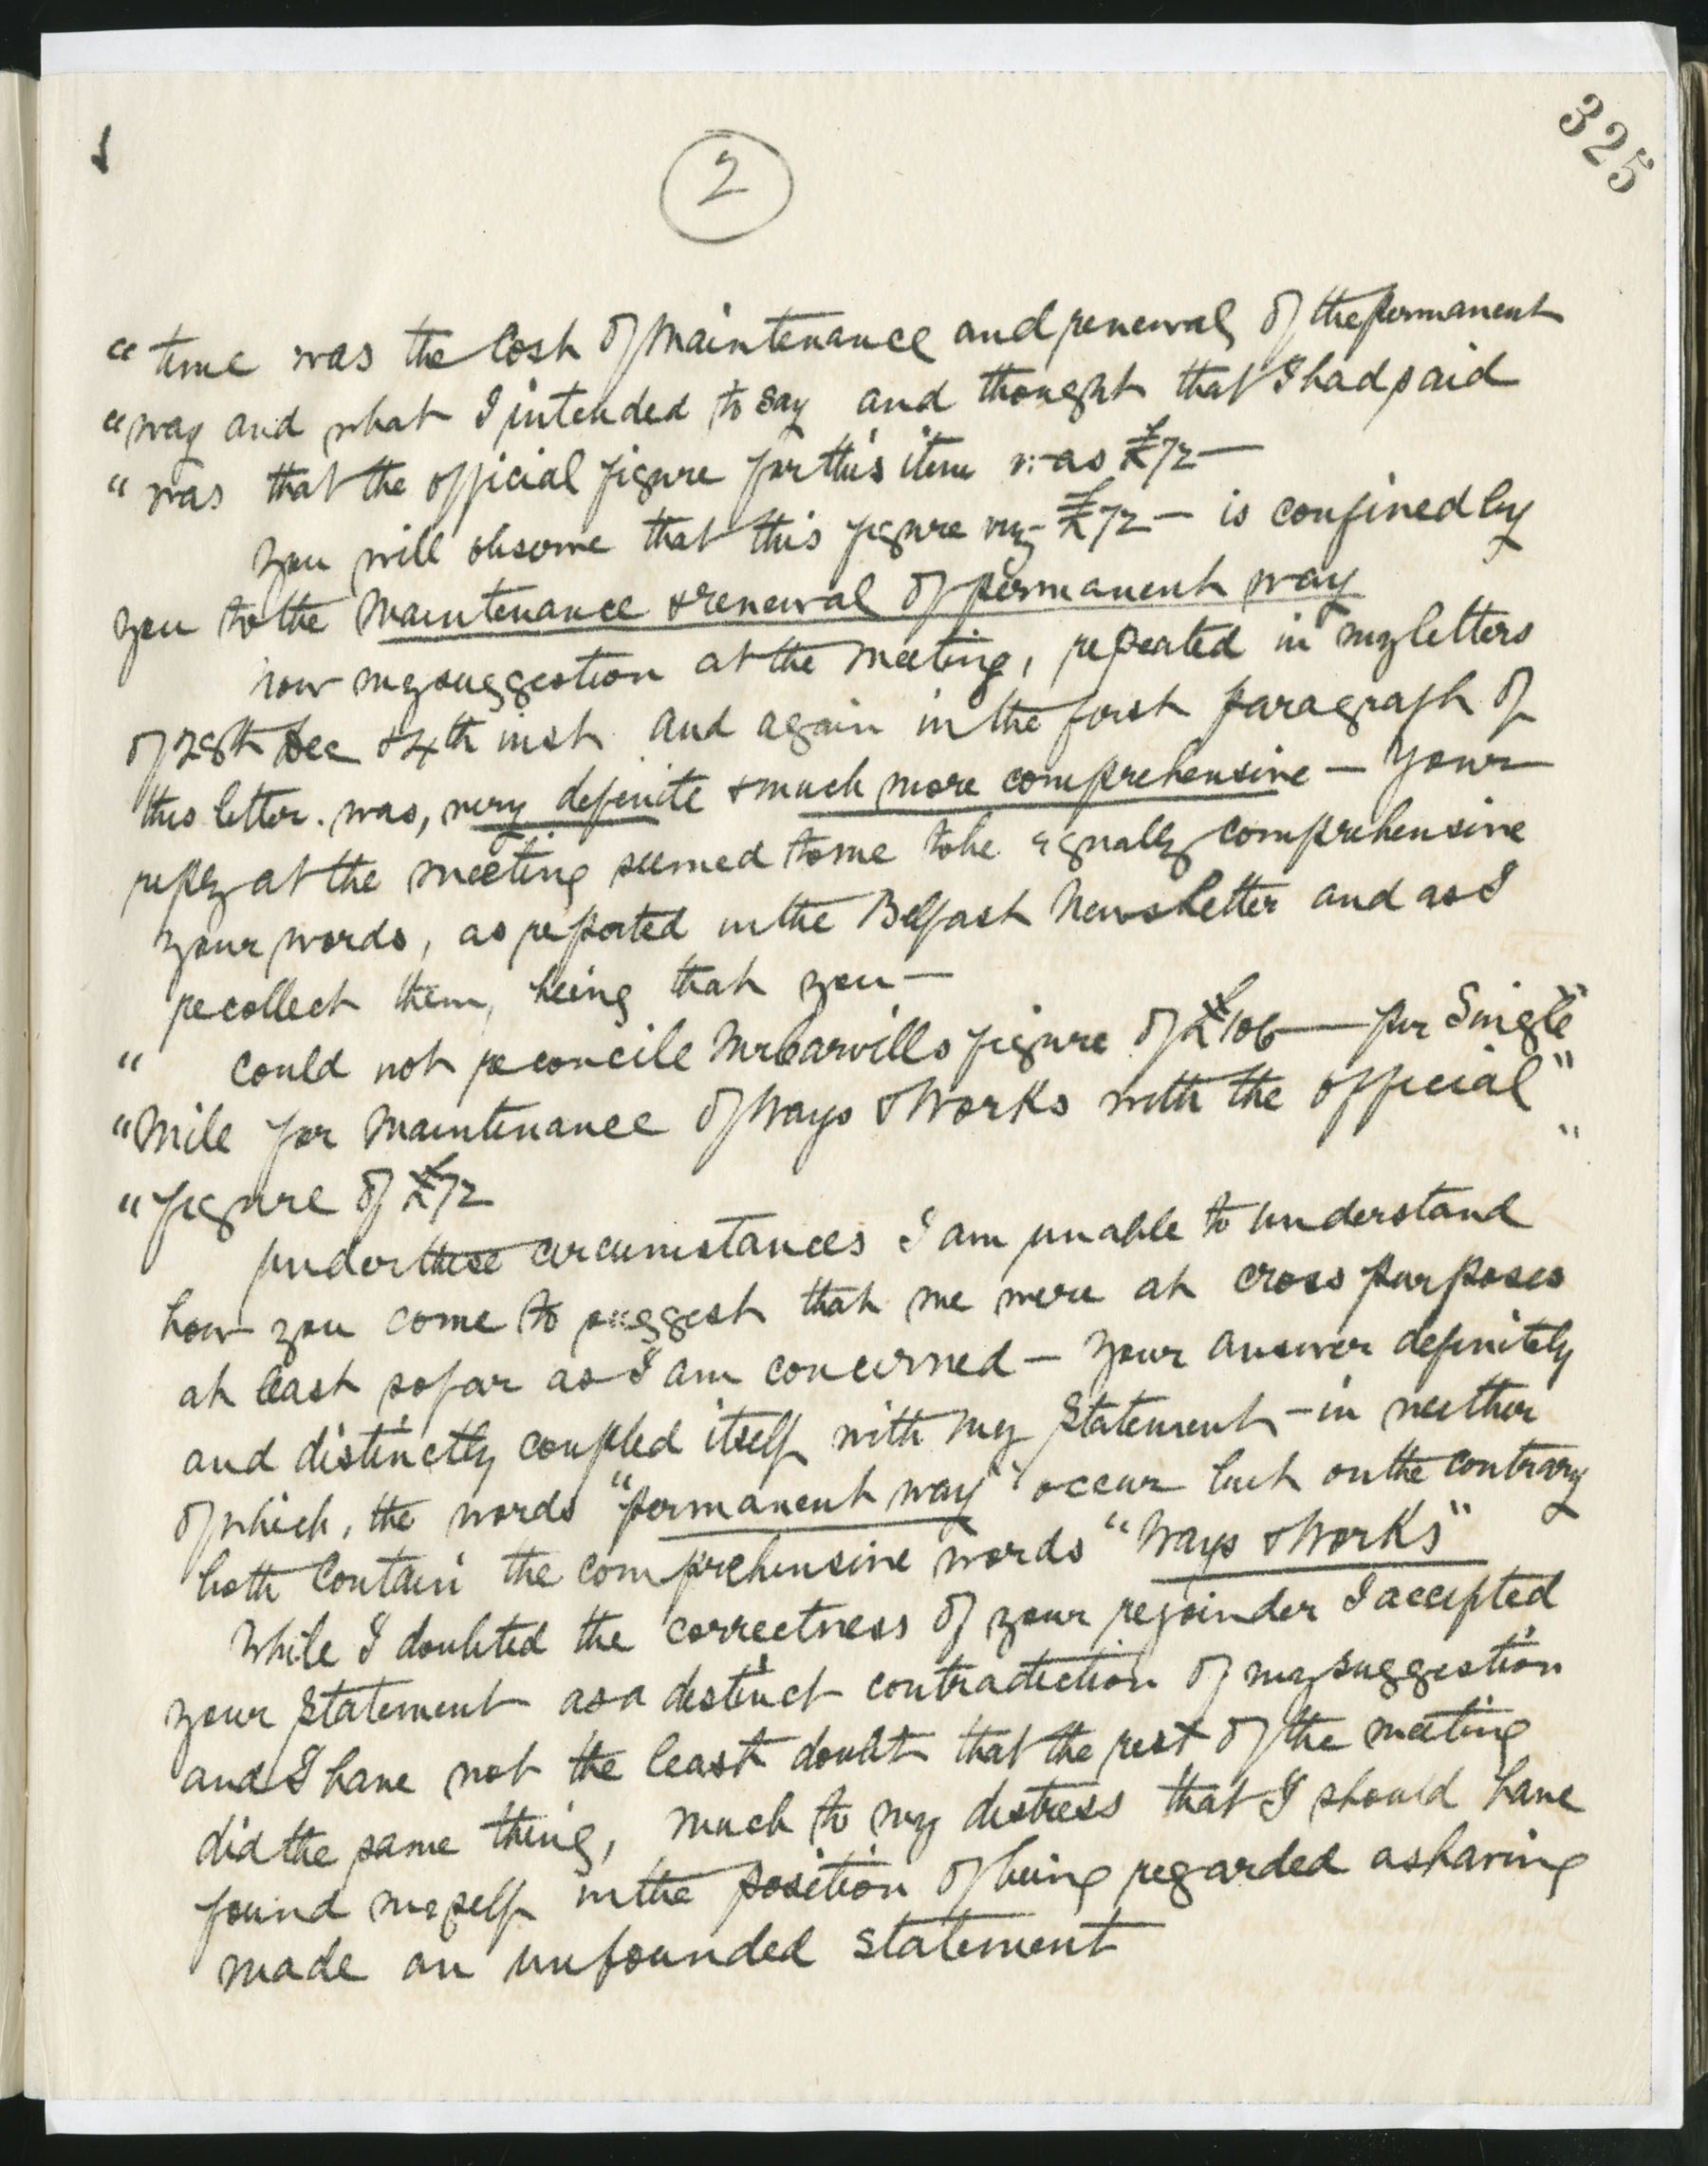 325
2
"time was the Cost of Maintenance and renewal of the permanent
"way and what I intended to say and thought that I had said
"was that the official figure for this item was £72 —
You will observe that this figure viz £72 — is confined by
you to the Maintenance & renewal of permanent way
Now my suggestion at the Meeting, repeated in my letters
of 28th Dec & 4th inst and again in the first paragraph of
this letter. was, very definite & much more comprehensive — Your
reply at the meeting seemed to me to be equally comprehensive
your words, as reported in the Belfast News Letter and as I
recollect them, being that you —
" could not reconcile Mr Carvills figure of £106 — per Single "
"Mile for Maintenance of Ways & Works with the official "
"figure of £72 "
Under these circumstances I am unable to understand
how you come to suggest that we were at cross purposes
at least so far as I am concerned — Your answer definitely
and distinctly coupled itself with my Statement — in neither
of which, the words "permanent way" occur but on the contrary
both Contain the comprehensive words "Ways & Works"
While I doubted the correctness of your rejoinder I accepted
your Statement as a distinct contradiction of my suggestion
and I have not the least doubt that the rest of the meeting
did the same thing, much to my distress that I should have
found myself in the position of being regarded as having
made an unfounded statement